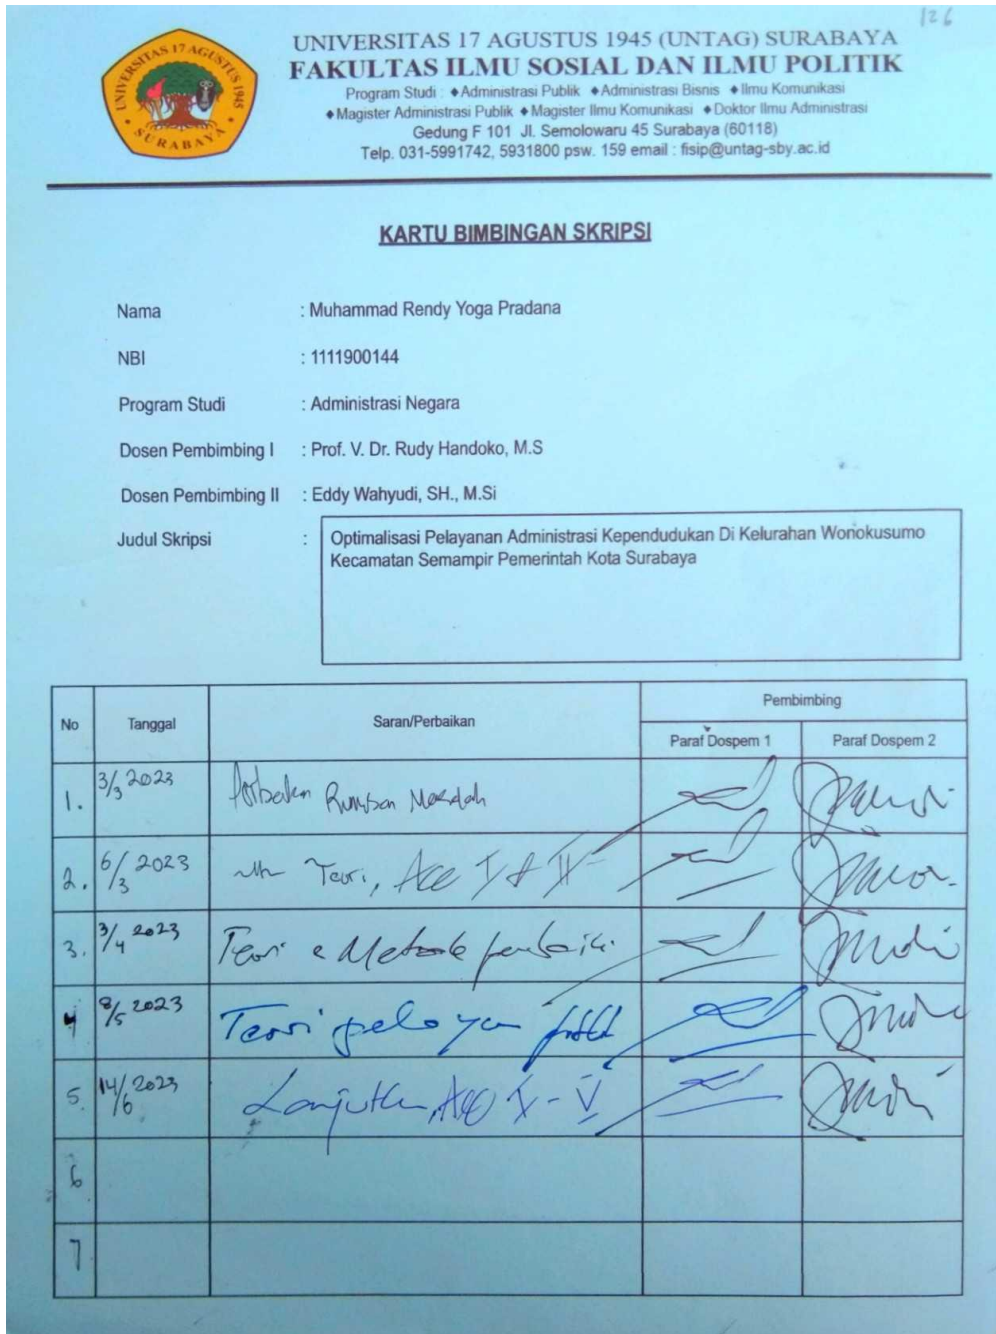 126
UNIVERSITAS 17 AGUSTUS 1945
SURABAYA
UNIVERSITAS 17 AGUSTUS 1945 (UNTAG) SURABAYA
FAKULTAS ILMU SOSIAL DAN ILMU POLITIK
Program Studi : ◆Administrasi Publik ◆Administrasi Bisnis ◆Ilmu Komunikasi
◆Magister Administrasi Publik ◆Magister Ilmu Komunikasi ◆Doktor Ilmu Administrasi
Gedung F 101 Jl. Semolowaru 45 Surabaya (60118)
Telp. 031-5991742, 5931800 psw. 159 email : fisip@untag-sby.ac.id
KARTU BIMBINGAN SKRIPSI
Nama : Muhammad Rendy Yoga Pradana
NBI : 1111900144
Program Studi : Administrasi Negara
Dosen Pembimbing I : Prof. V. Dr. Rudy Handoko, M.S
Dosen Pembimbing II : Eddy Wahyudi, SH., M.Si
Judul Skripsi : Optimalisasi Pelayanan Administrasi Kependudukan Di Kelurahan Wonokusumo
Kecamatan Semampir Pemerintah Kota Surabaya
No Tanggal Saran/Perbaikan Pembimbing
Paraf Dospem 1 Paraf Dospem 2
1. 3/3 2023
2. 6/3 2023 Teori, Acc I & II
3. 3/4 2023 Teori & Metode
4 8/5 2023 Teori
5. 14/6 2023 Acc I - V
6
7